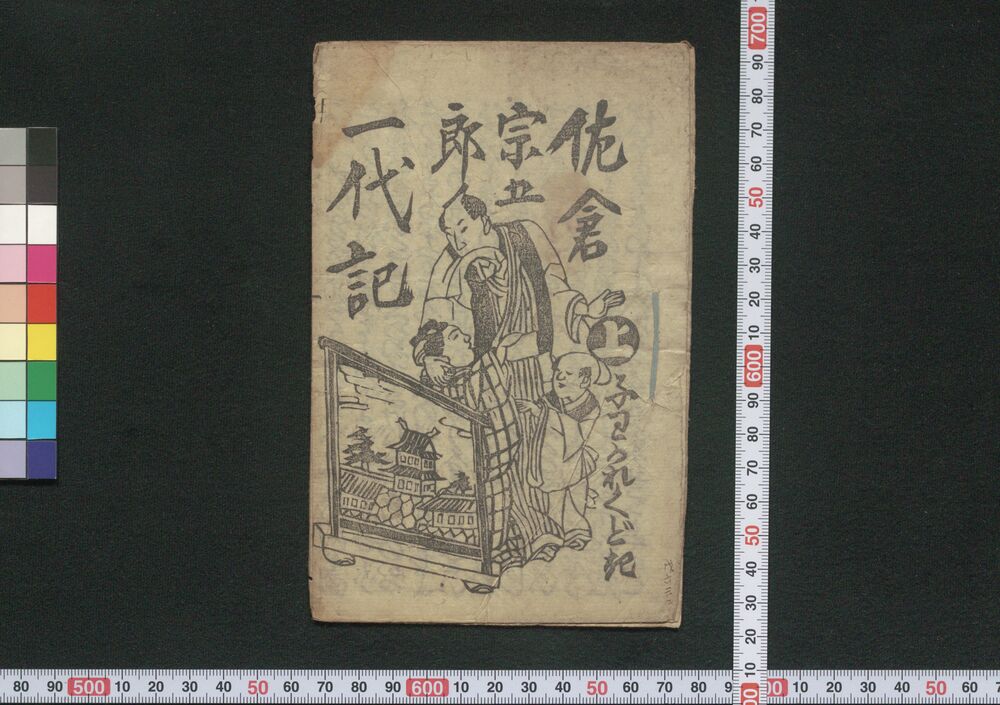 佐倉
宗五
郎
一代記
上
子わかれくどき
700 90 80 70 60 50 40 30 20 10 600 90 80 70 60 50 40 30 20 10
80 90 500 10 20 30 40 50 60 70 80 90 600 10 20 30 40 50 60 70 80 10 20 30 40 50 60